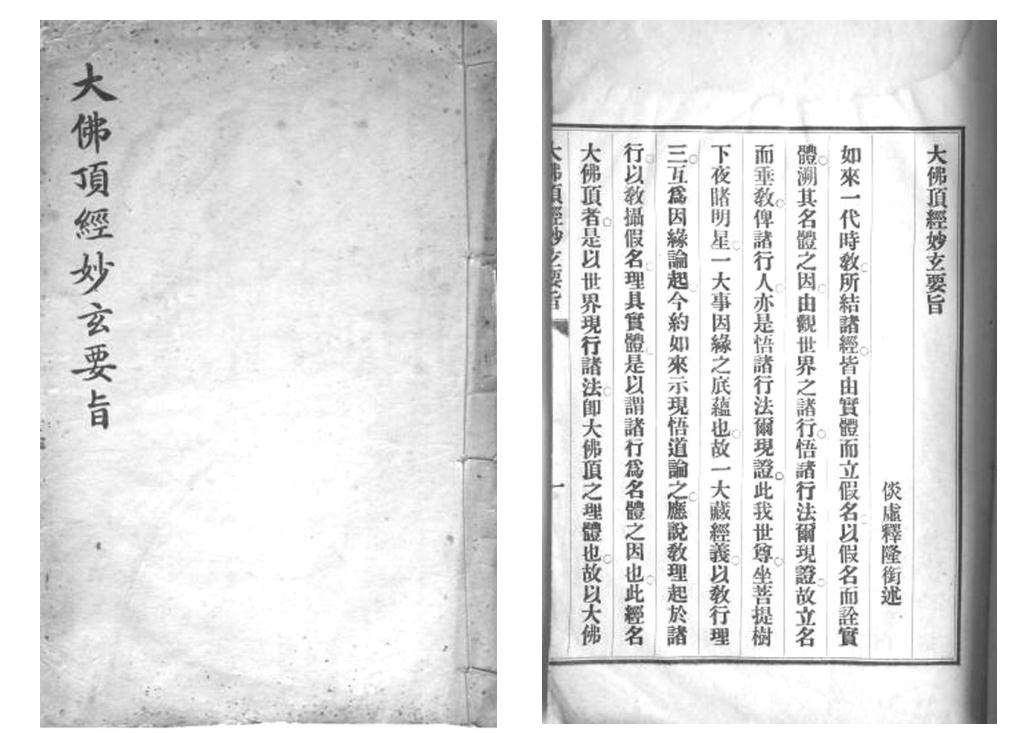 大佛頂經妙玄要旨
大佛頂經妙玄要旨
倓虛釋隆銜述
如來一代時教所結諸經皆由實體而立假名以假名而詮實
體溯其名體之因由觀世界之諸行悟諸行法爾現證故立名
而垂教俾諸行人亦是悟諸行法爾現證此我世尊坐菩提樹
下夜睹明星一大事因緣之底蘊也故一大藏經義以教行理
三互爲因緣論起今約如來示現悟道論之應說教理起於諸
行以教攝假名理具實體是以謂諸行爲名體之因也此經名
大佛頂者是以世界現行諸法卽大佛頂之理體也故以大佛
大佛頂經妙玄要旨
一